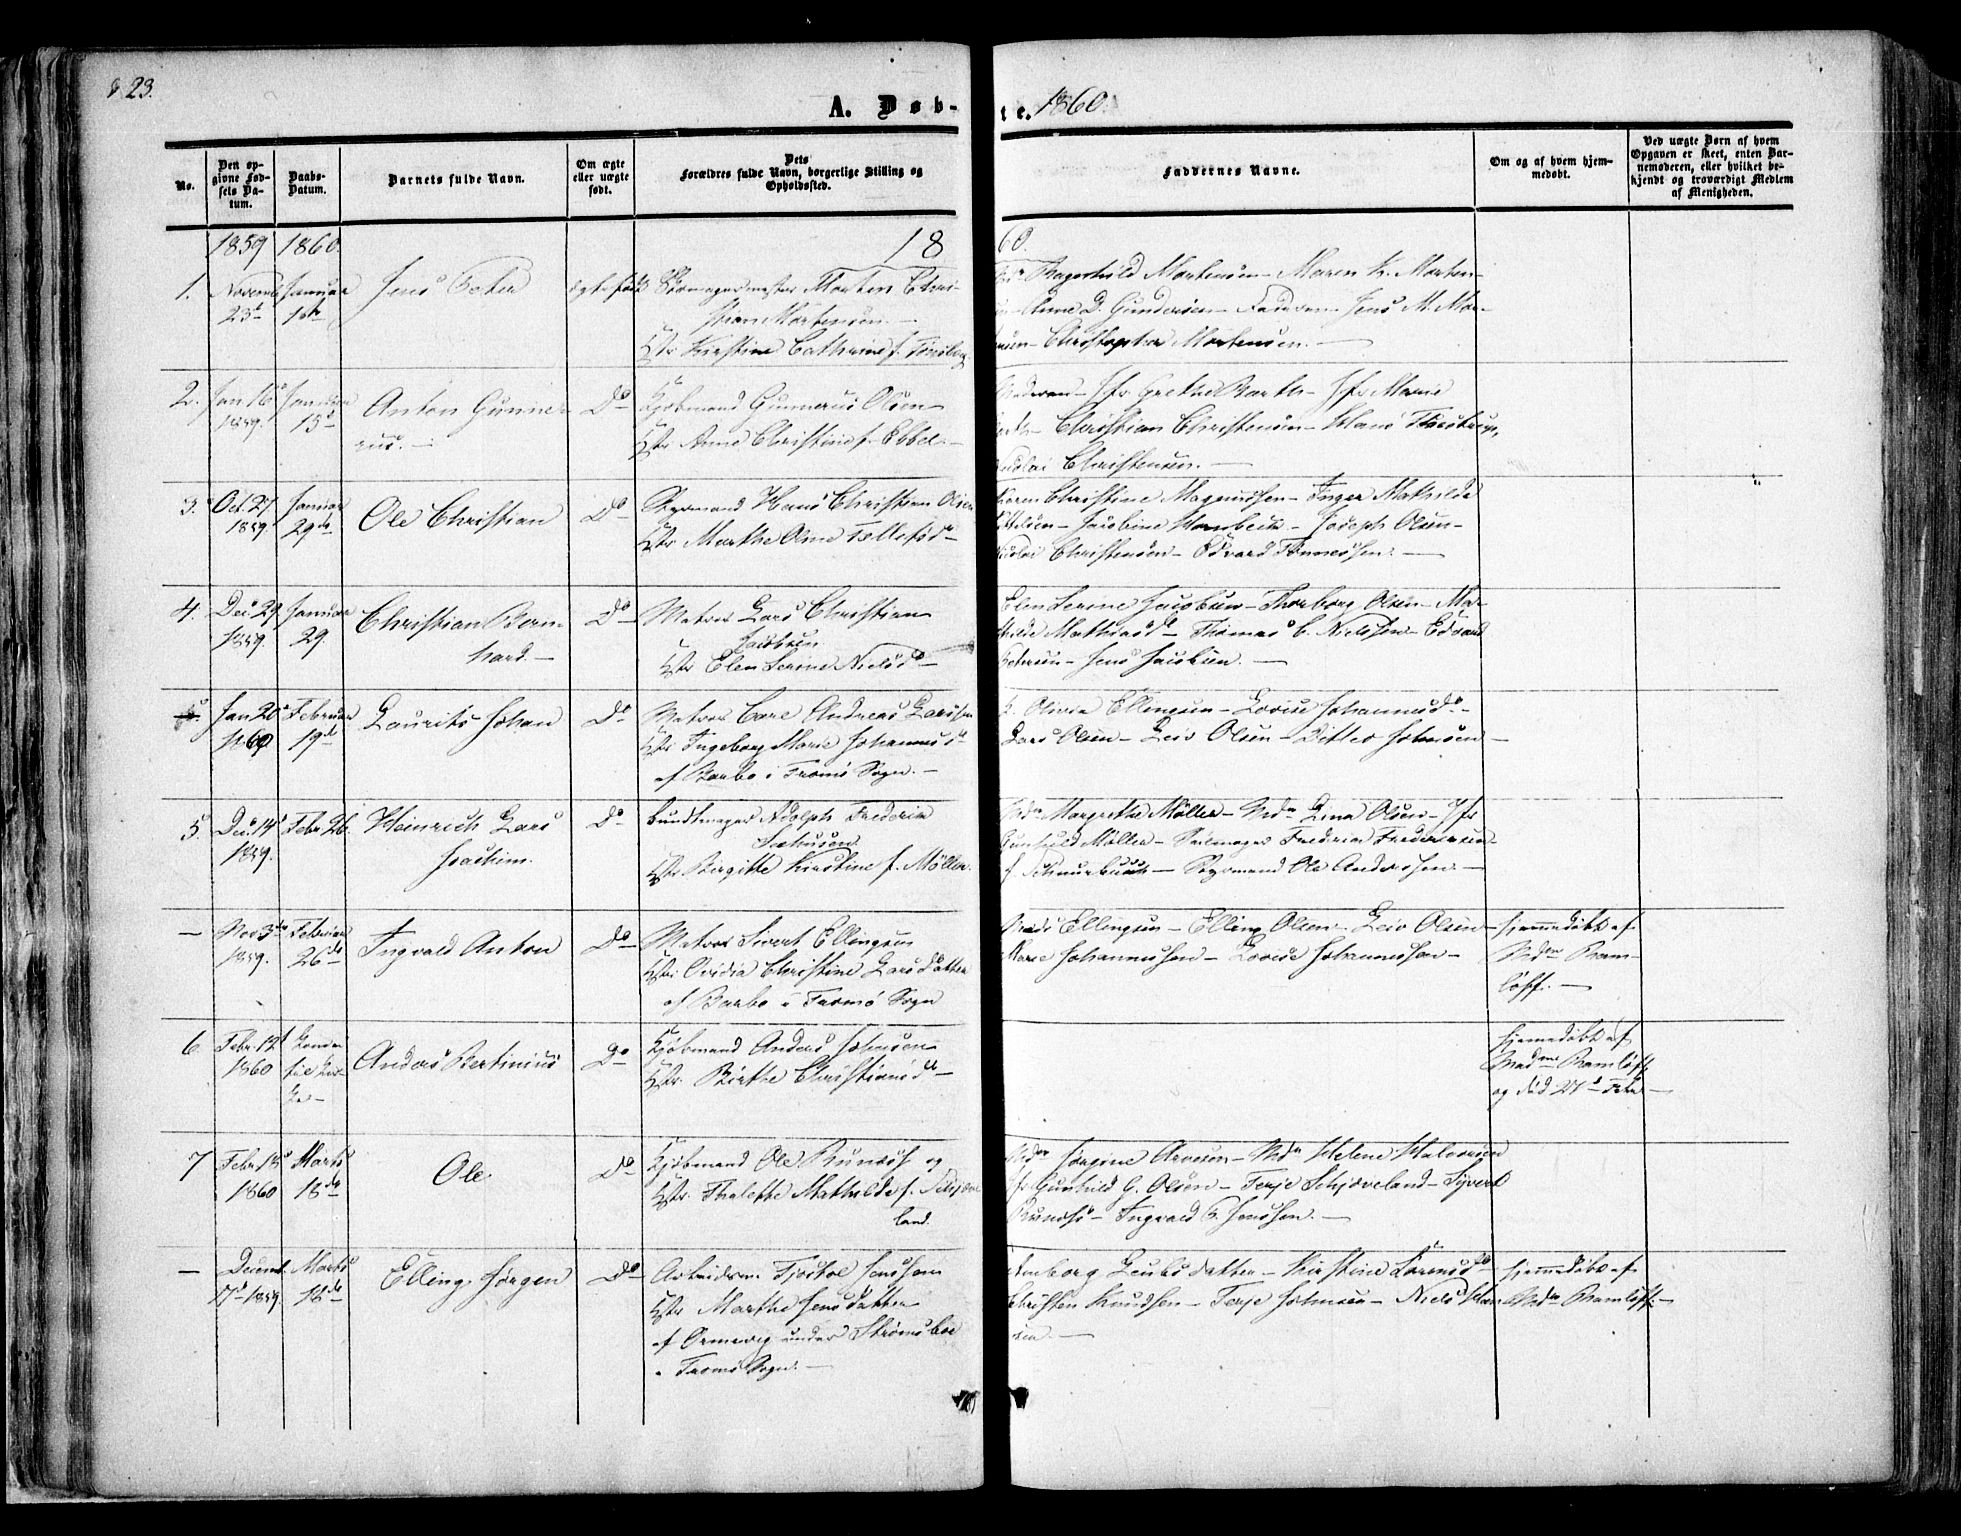 23.
A. Døb-
te. 1860.
No.
Den op-
givne Fød-
sels Da-
tum.
Daabs-
Datum.
Barnets fulde Navn.
Om ægte
eller uægte
født.
Dets
Forældres fulde Navn, borgerlige Stilling og
Opholdssted.
Faddernes Navne.
Om og af hvem hjem-
medøbt.
Ved uægte Børn af hvem
Opgaven er skeet, enten Bar-
nemoderen, eller hvilket be-
kjendt og troværdigt Medlem
af Menigheden.
1859 1860.
18
60.
1.
Novemb
23d
Januar
1ste
Jens Peter
ægte født
Skomagermester Morten Chri-
stian Mortensen.
Hstr Kirstine Cathrine f. Tønsberg
Ragnhild Mortensen - Maren K. Morten-
Anne D. Gundersen - Faderen - Jens M. Mor-
tensen - Christopher Mortensen.
2.
Jan 16
1859.
Januar
15d
Anton Gunne-
rius.
Do
Kjøbmand Gunnerius Olsen
Hstr Anne Christine f. Ebbel.
Moderen - Jfr Grethe Barth - Jfr Marie
Christian Christensen - Hans
Nicolai Christensen.
3.
Oct. 27
1859.
Januar
29de
Ole Christian
Do
Styrmand Hans Christian Olsen
Hstr Marthe Ane Tellefsd
Karen Christine Magnussen - Inger Mathilde
Kittelsen - Jacobine Hambech - Joseph Olsen -
Nicolai Christensen - Edvard Tønnessen.
4.
Dec. 29
1859.
Januar
29.
Christian Bern-
hard.
Do
Matros Lars Christian
Jacobsen
Hstr Elen Serine Nielsd
Elen Serine Jacobsen - Thorborg Olsen - Ma-
thilde Mathiasd - Thomas C. Nielsen - Edvard
Petersen - Jens Jacobsen.
Jan 20
1860
Februar
19d
Laurits Johan
Do
Matros Carl Andreas Larssen
Hstr Ingeborg Marie Johannesd
af Barbo i Tromø Sogn.
Olivia Ellingsen - Lovise Johannesd -
Lars Olsen - Leiv Olsen - Ditlev Johnsen
5.
Dec. 14
1859.
Febr. 26.
Heinrich Lars
Joachim.
Do
Bundtmager Adolph Frederik
Hstr Birgitte Kirstine f. Møller.
Mdm Margrethe Møller - Mdm Lina Olsen - Jfr
Gunhild Møller - Seilmager Fredrik Fredriksen
Styrmand Ole Anderssen.
-
Nov 3
1859.
Februar
26de
Ingvald Anton
Do
Matros Sivert Ellingsen
Hstr Ovidia Christine Larsdatter
af Barbo i Tromø Sogn
Mads Ellingsen - Elling Olsen - Leiv Olsen -
Marie Johannessen - Lovise Johannessen -
hjemmedøbt af
Mdm Ram-
løff.
6
Febr. 12
1860
Anders Bertinius
Do
Kjøbmand Anders Johnsen
Hstr Birthe Christiansd
hjemmedøbt af
Madme Ramløff
og død 27d Febr
7
Febr 13
1860
Marts
18de
Ole
Do
Kjøbmand Ole Runæss og
Hstr Thalette Mathilde f. Schjæve-
land.
Mdm Jørgine Arvesen - Mdm Helene Halvorsen
Jfr Gunhild G. Olsen - Terje Schjæveland - Syvert
Runæss - Ingvald C. Jenssen.
-
Decemb.
17d 1859.
Marts
18de
Elling Jørgen
Do
Arbeidsm. Fjostol Jenssen
Hstr Marthe Jensdatter
af Ormevig under Strømsboe
i Tromø Sogn.
datter - Kirstine Sørensd
Christen Knudsen - Terje Johnsen - Niels Han-
sen.
hjemmedøbt af
Mdm Ramløff.